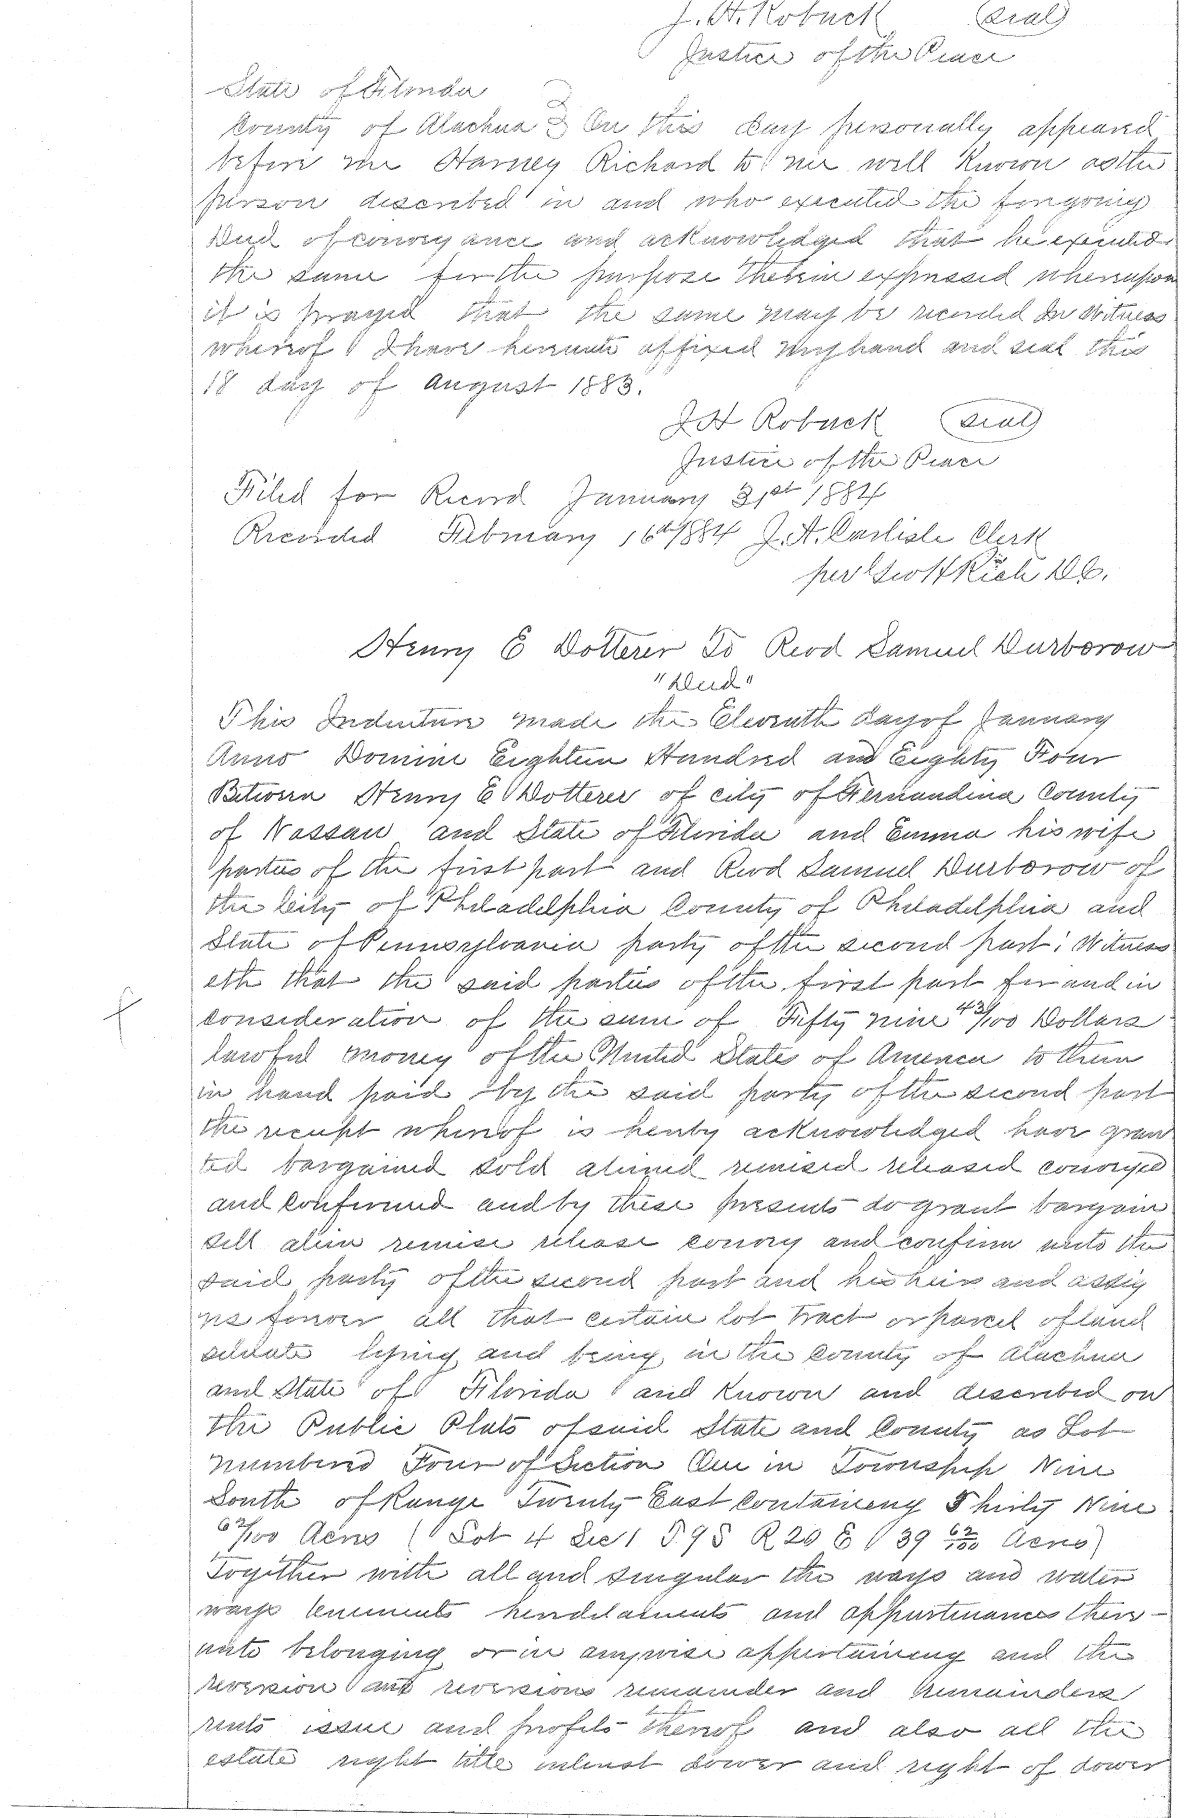 J. H. Robuck (seal)
Justice of the Peace
State of Florida
County of Alachua } On this day personally appeared
before me Harney Richard to me well known as the
person described in and who executed the forgoing
Deed of conveyance and acknowledged that he executed
the same for the purpose therein expressed whereupon
it is prayed that the same may be recorded In Witness
whereof I have hereunto affixed my hand and seal this
18 day of August 1883.
J H Robuck (seal)
Justice of the Peace
Filed for Record January 31st 1884
Recorded February 16th 1884 J. A. Carlisle Clerk
per Geo H Rich D.C.
Henry E Dotterer To Revd Samuel Durborow
"Deed"
This Indenture made the Eleventh day of January
Anno Domini Eighteen Hundred and Eighty Four
Between Henry E Dotterer of city of Fernandina County
of Nassau and State of Florida and Emma his wife
parties of the first part and Revd Samuel Durborow of
the City of Philadelphia County of Philadelphia and
State of Pennsylvania party of the second part: Witness
eth that the said parties of the first part for and in
consideration of the sum of Fifty nine 43/100 Dollars
lawful money of the United States of America to them
in hand paid by the said party of the second part
the receipt whereof is hereby acknowledged have gran
ted bargained sold aliened remised released conveyed
and confirmed and by these presents do grant bargain
sell alien remise release convey and confirm unto the
said party of the second part and his heirs and assig
ns forever all that certain lot tract or parcel of land
situate lying and being in the County of Alachua
and State of Florida and known and described on
the Public Plats of said State and County as Lot
numbered Four of Section One in Township Nine
South of Range Twenty East containing Thirty Nine
62/100 Acres (Lot 4 Sec 1 T 9 S R 20 E 39 62/100 Acres)
Together with all and singular the ways and water
ways tenements hereditaments and appurtenances there-
unto belonging or in anywise appertaining and the
reversion and reversions remainder and remainders
rents issue and profits thereof and also all the
estate right title interest dower and right of dower